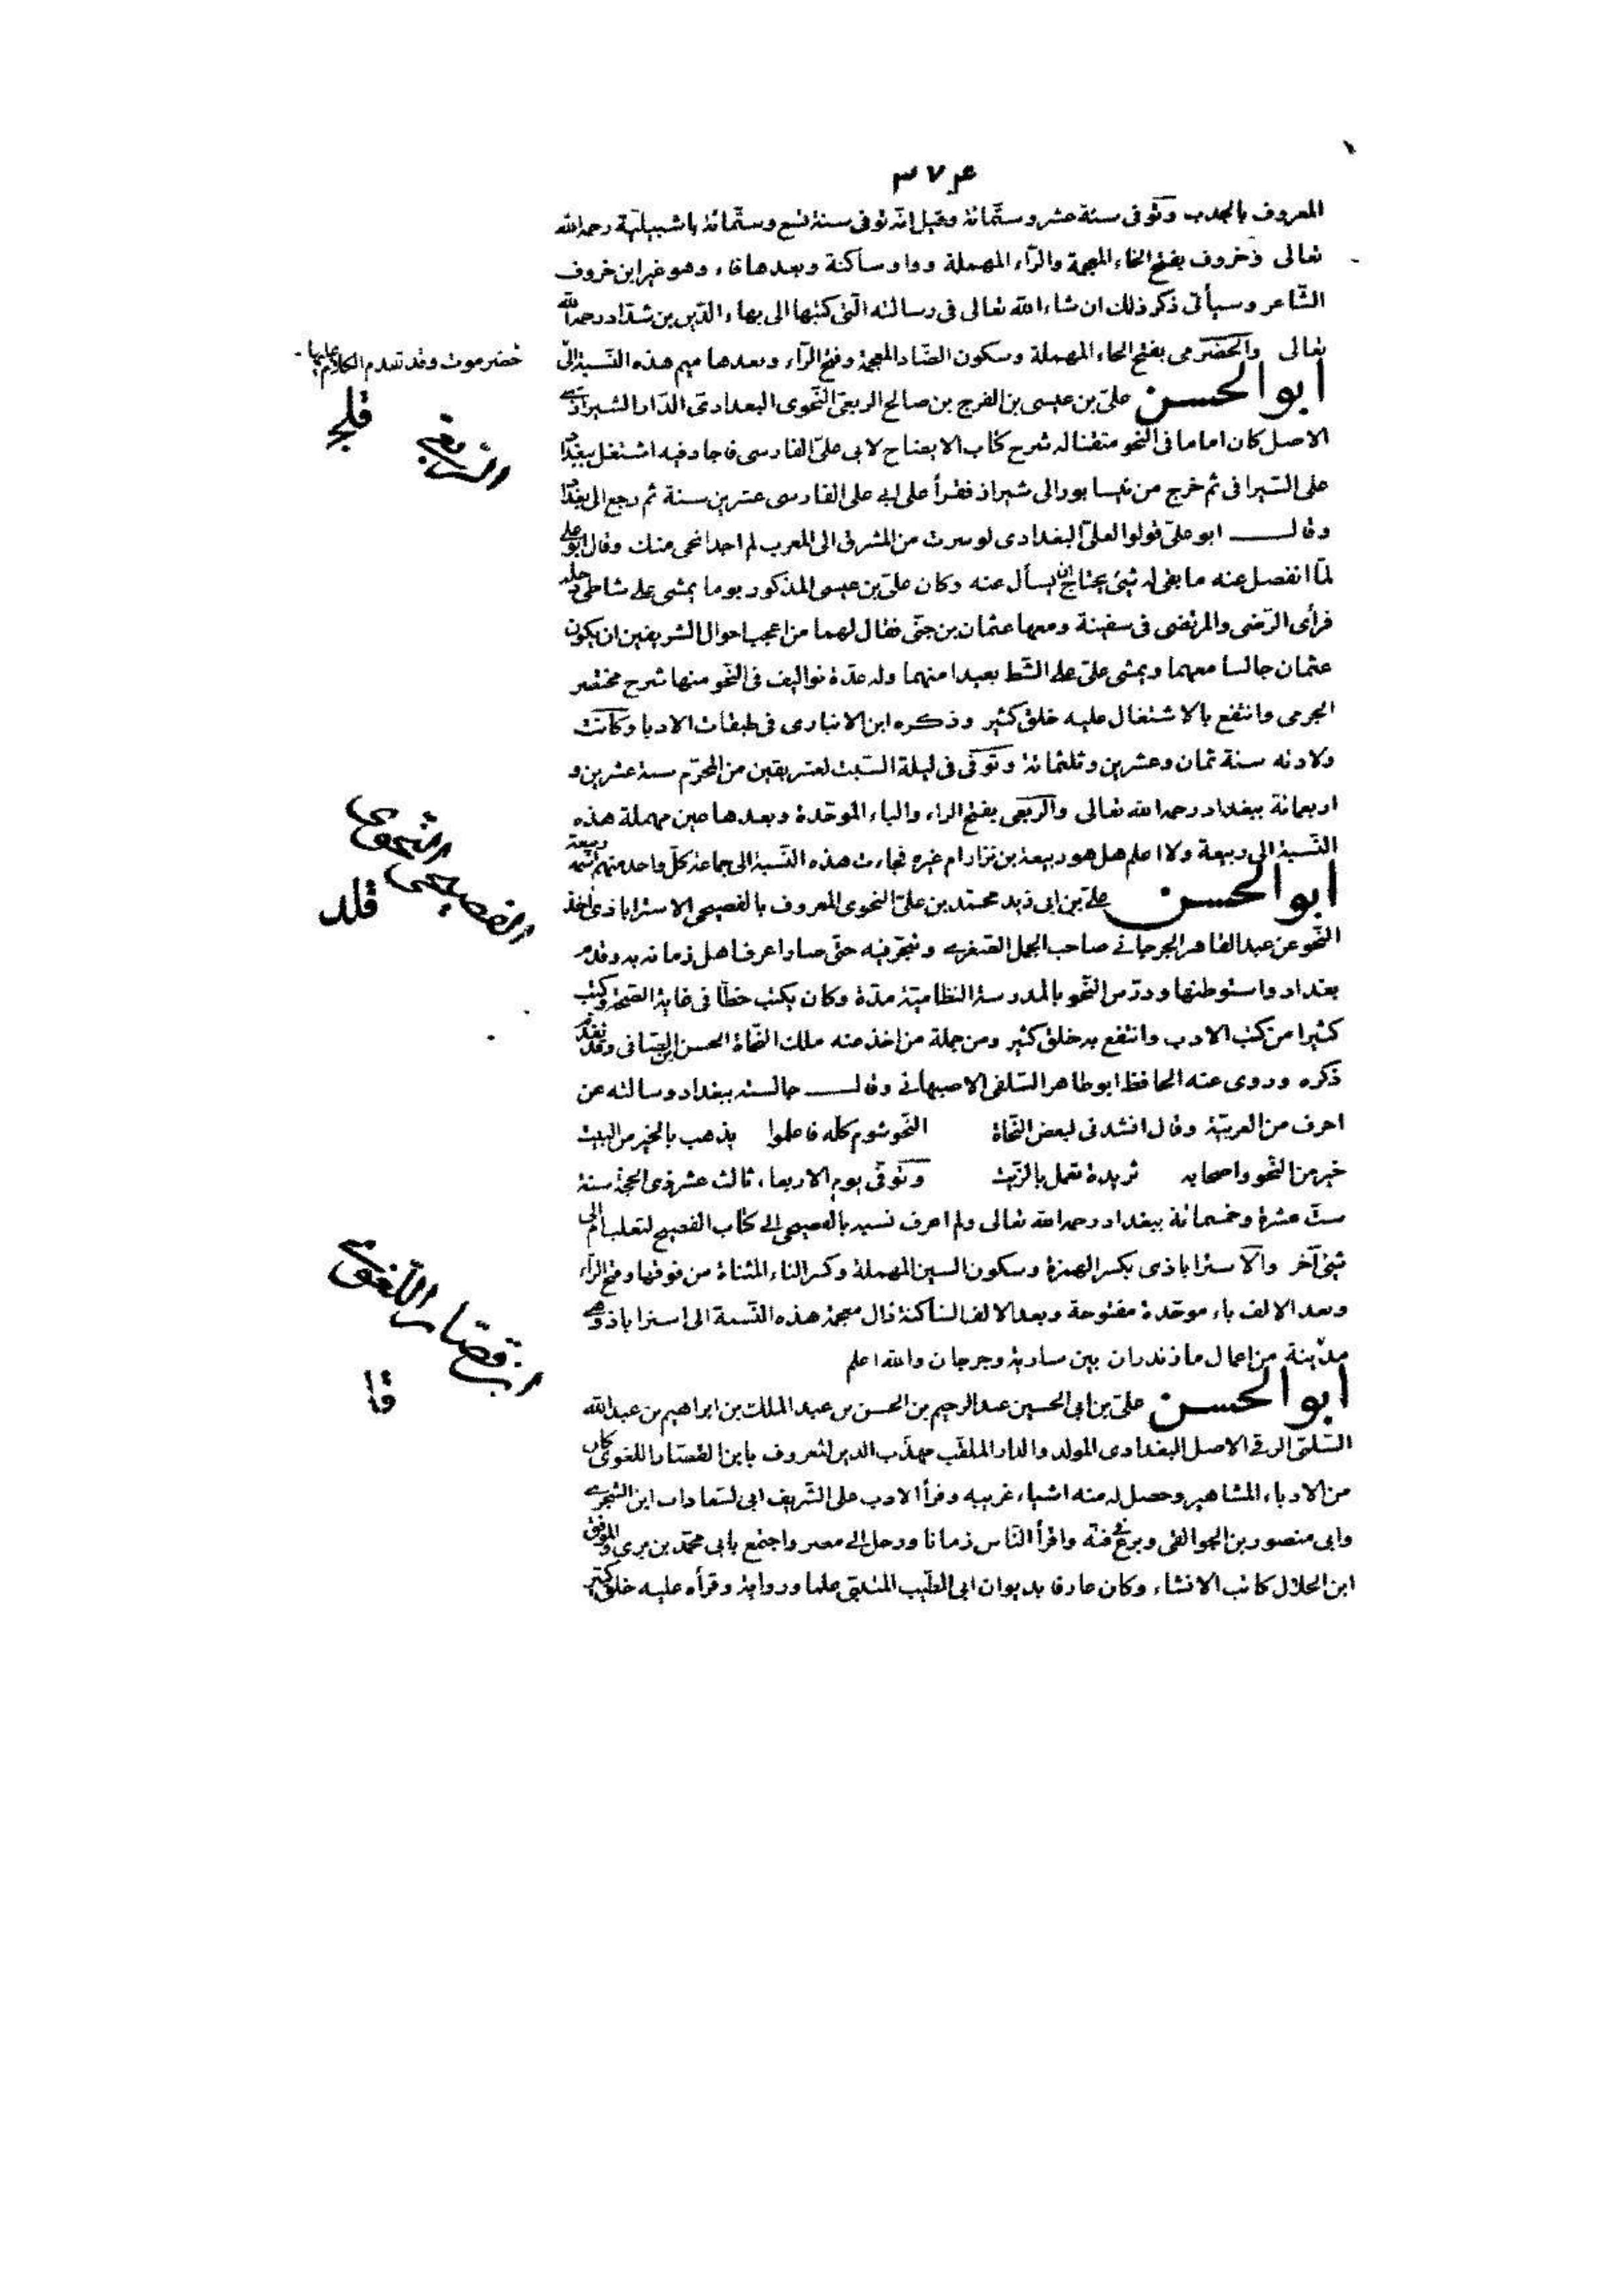 ٣٧٤
المعروف بالجدب وتوفى سنة عشر وستّمائة وقيل انّه توفى سنة تسع وستّمائة باشبيليّة رحمه الله
تعالى وخروف بفتح الخاء المعجمة والرّاء المهملة وواو ساكنة وبعدها فاء وهو غير ابن خروف
الشّاعر وسيأتى ذكر ذلك ان شاء الله تعالى فى رسالته الّتى كتبها الى بهاء الدّين بن شدّاد رحمه الله
تعالى والحضرمى بفتح الحاء المهملة وسكون الضّاد المعجمة وفتح الرّاء وبعدها ميم هذه النّسبة الى
حضرموت وقد تقدم الكلام عليها
ابو الحسن علىّ بن عيسى بن الفرج بن صالح الربعى النّحوى البغدادى الدّار الشيرازى
الربعى
قلج
الاصل كان اماما فى النحو متقنا له شرح كتاب الايضاح لابى علىّ الفارسى فاجاد فيه اشتغل ببغداد
على السّيرافى ثم خرج من نيسابور الى شيراز فقرأ على ابى على الفارسى عشرين سنة ثم رجع الى بغداد
وقال ابو علىّ قولوا لعلىّ البغدادى لو سرت من المشرق الى المغرب لم اجد انحى منك وقال ابو على
لمّا انفصل عنه ما بقى له شئ يحتاج ان يسأل عنه وكان علىّ بن عيسى المذكور يوما يمشى على شاطى دجله
فرأى الرّضى والمرتضى فى سفينة ومعها عثمان بن جنّى فقال لهما من اعجب احوال الشريفين ان يكون
عثمان جالسا معهما ويمشى علىّ على الشّط بعيدا منهما وله عدّة تواليف فى النّحو منها شرح مختصر
الجرمى وانتفع بالاشتغال عليه خلق كثير وذكره ابن الانبارى فى طبقات الادبا وكانت
ولادته سنة ثمان وعشرين وثلثمائة وتوفّى فى ليلة السّبت لعشر بقين من المحرّم سنة عشرين و
اربعمائة ببغداد رحمه الله تعالى والرّبعى بفتح الراء والباء الموحّدة وبعدها عين مهملة هذه
النّسبة الى ربيعة ولا اعلم هل هو ربيعة بن نزار ام غيره فجاءت هذه النّسبة الى جماعة كلّ واحد منهم اسمه ربيعة
ابو الحسن علىّ بن ابى زيد محمّد بن علىّ النحوى المعروف بالفصيحى الاستراباذى اخذ
النحوى
الفصيحى
قلد
النّحو عن عبد القاهر الجرجانى صاحب الجمل الصّغرى وتبحّر فيه حتّى صار اعرف اهل زمانه به وقدم
بغداد واستوطنها ودرّس النّحو بالمدرسة النظاميّة مدّة وكان يكتب خطّا فى غاية الصّحّة وكتب
كثيرا من كتب الادب وانتفع به خلق كثير ومن جملة من اخذ عنه ملك النّحاة الحسن بن الصّافى وقد تقدم
ذكره وروى عنه الحافظ ابو طاهر السّلفى الاصبهانى وقال جالسته ببغداد وسالته عن
احرف من العربيّة وقال انشدنى لبعض النّحاة النّحو شوم كلّه فاعلموا يذهب بالخير من البيت
خير من النّحو واصحابه ثريدة تعمل بالزّيت وتوفّى يوم الاربعاء ثالث عشر ذى الحجّة سنة
ستّ عشرة وخمسمائة ببغداد رحمه الله تعالى ولم اعرف نسبه بالفصيحى الى كتاب الفصيح لثعلب ام الى
شئ آخر والاستراباذى بكسر الهمزة وسكون السين المهملة وكسر التاء المثناة من فوقها وفتح الرّاء
وبعد الالف باء موحّدة مفتوحة وبعد الالف الساكنة ذال معجمة هذه النّسبة الى استراباذ وهى
مدّينة من اعمال مازندران بين سارية وجرجان والله اعلم
ابو الحسن علىّ بن ابى الحسين عبد الرحيم بن الحسن بن عبد الملك بن ابراهيم بن عبد الله
ابن قصّار اللّغوى
قا
السّلمى الرقى الاصل البغدادى المولد والدار الملقّب مهذّب الدين المعروف بابن القصّار اللغوى كان
من الادباء المشاهير وحصل له منه اشياء غريبه وقرأ الادب على الشّريف ابى السّعادات ابن الشّجرى
وابى منصور بن الجواليقى وبرع فى فنّه واقرأ النّاس زمانا ورحل الى مصر واجتمع بابى محمّد بن برى والموفق
ابن الخلال كاتب الانشاء وكان عارفا بديوان ابى الطّيب المتنبّى علما ورواية وقرأه عليه خلق كثير